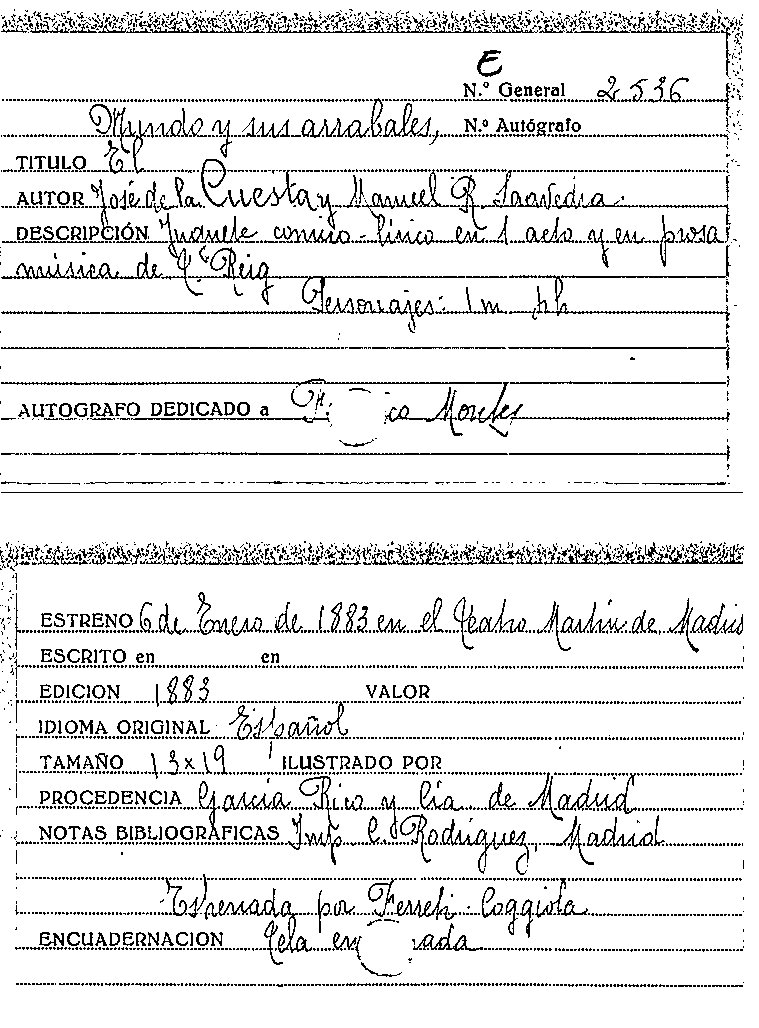 E
N.º General 2536
Mundo y sus arrabales, N.º Autógrafo
TITULO El
AUTOR José de la Cuesta y Manuel R. Saavedra.
DESCRIPCIÓN Juguete cómico-lírico en 1 acto y en prosa
música de Reig
Personajes: 1 m
AUTOGRAFO DEDICADO a
ESTRENO 6 de Enero de 1883 en el Teatro Martín de Madrid
ESCRITO en en
EDICION 1883 VALOR
IDIOMA ORIGINAL Español
TAMAÑO 13 x 19 ILUSTRADO POR
PROCEDENCIA García Rico y Cía. de Madrid
NOTAS BIBLIOGRAFICAS Imp. C. Rodríguez, Madrid
Estrenada por Coggiola
ENCUADERNACION Tela